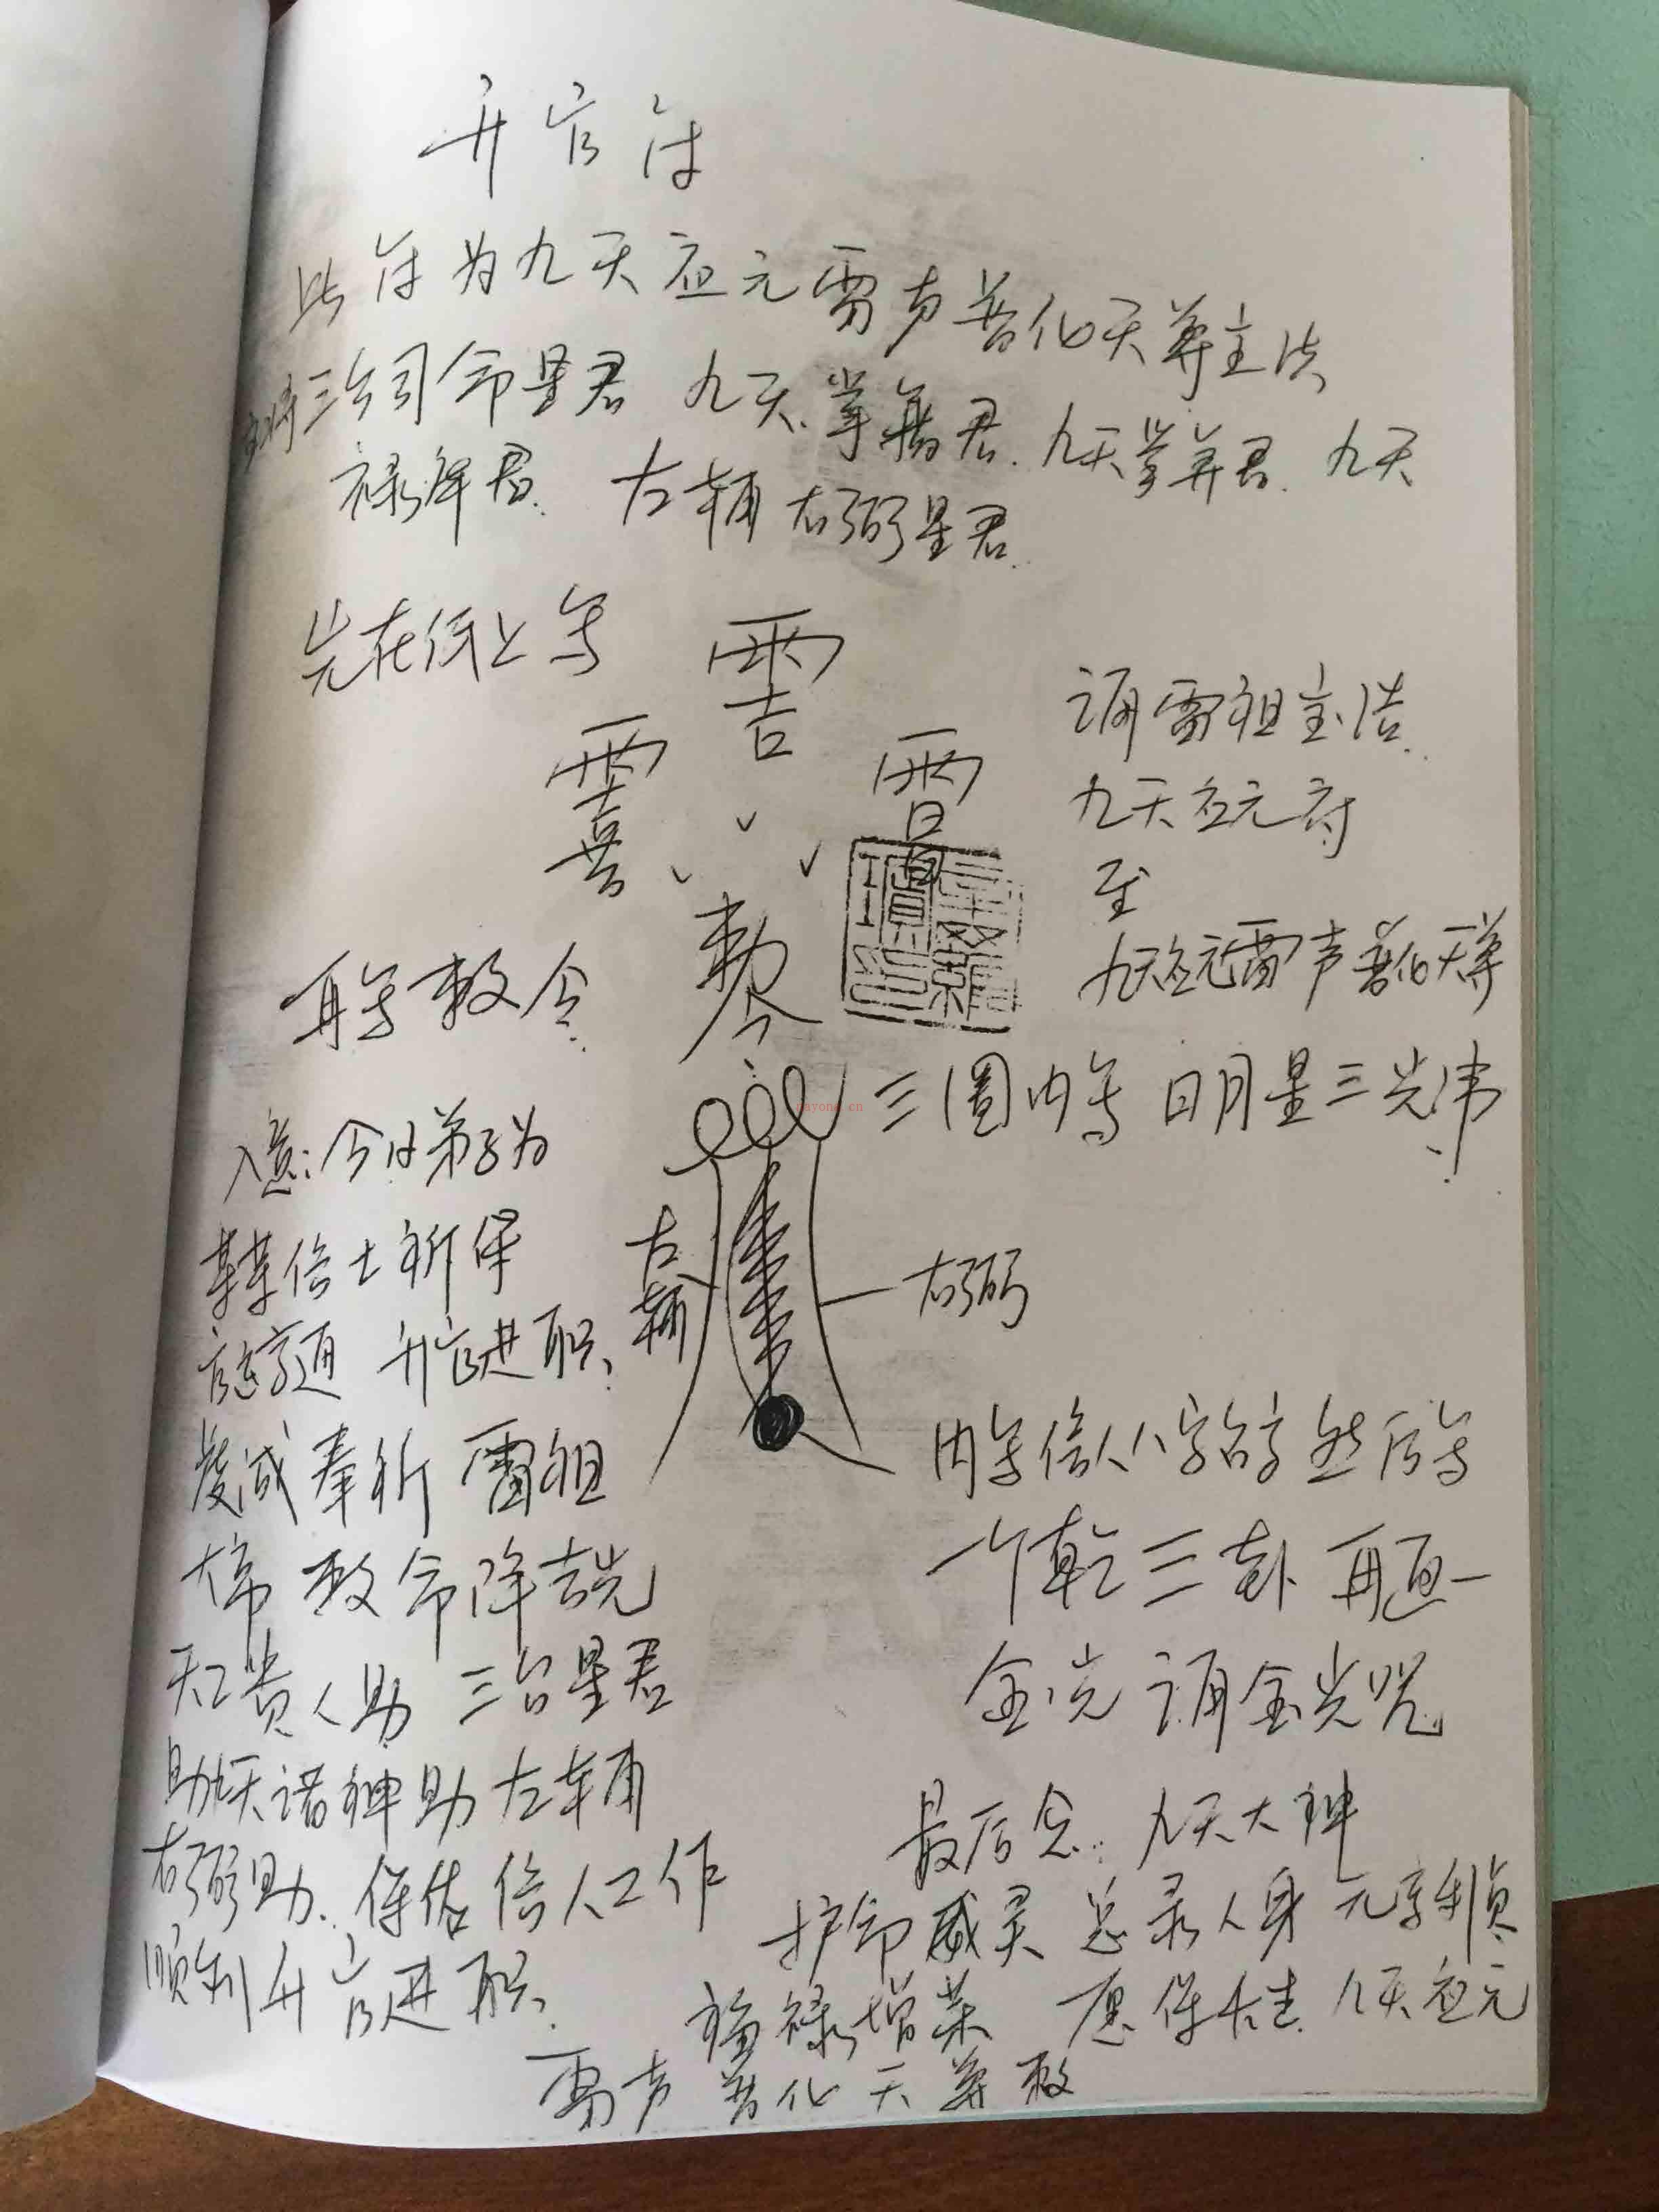 升官符
此符为九天应元雷声普化天尊主法
三台司命星君 九天掌籍君、九天掌算君、九天
禄库君、左辅右弼星君.
先在纸上写
再写敕令.
敕令
诵雷祖宝诰.
九天应元府
至
九天应元雷声普化天尊
三圈内写 日月星三光讳.
入意:今日弟子为
某某信士祈保
官运亨通 升官进职、
虔诚奉祈 雷祖
大帝 敕命降吉光
天上贵人助 三台星君
助九天诸神助左辅
右弼助.保佑信人工作
顺利升官进职.
左辅
右弼
内写信人八字名字 然后写
一个乾三卦 再画一
金光 诵金光咒
最后念: 九天大神
护命威灵 总录人身 元亨利贞
福禄增荣 愿保长生 九天应元
雷声普化天尊敕
jayong.cn